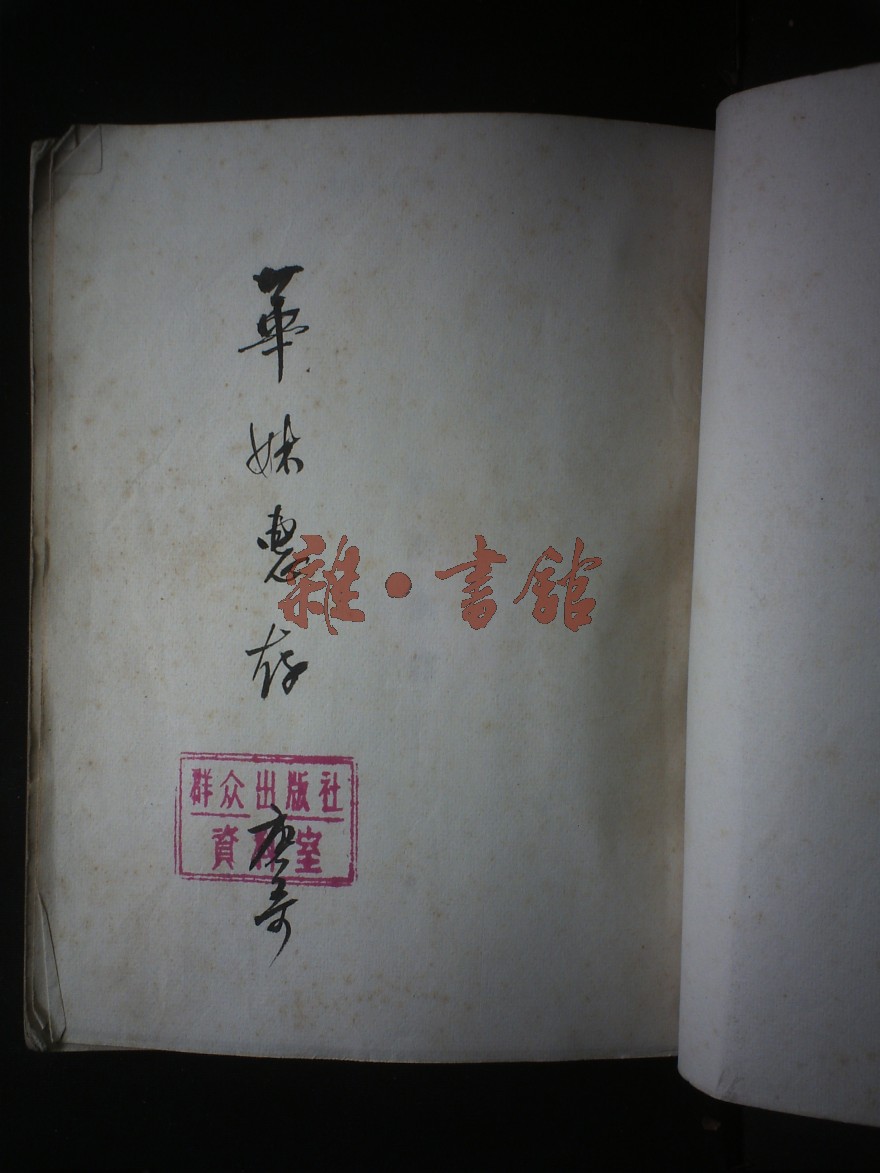 華妹惠存
康哥
群众出版社
資料室
雜·書館